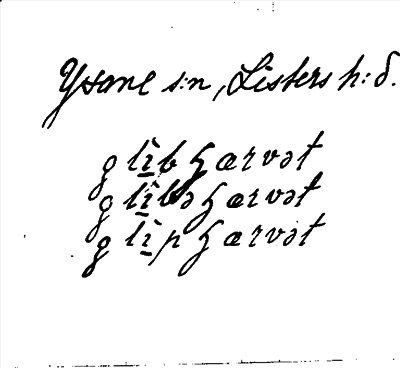 Ysane s:n, Listers h:d.
glìb hærvət
glìbə hærvət
glìp hærvət